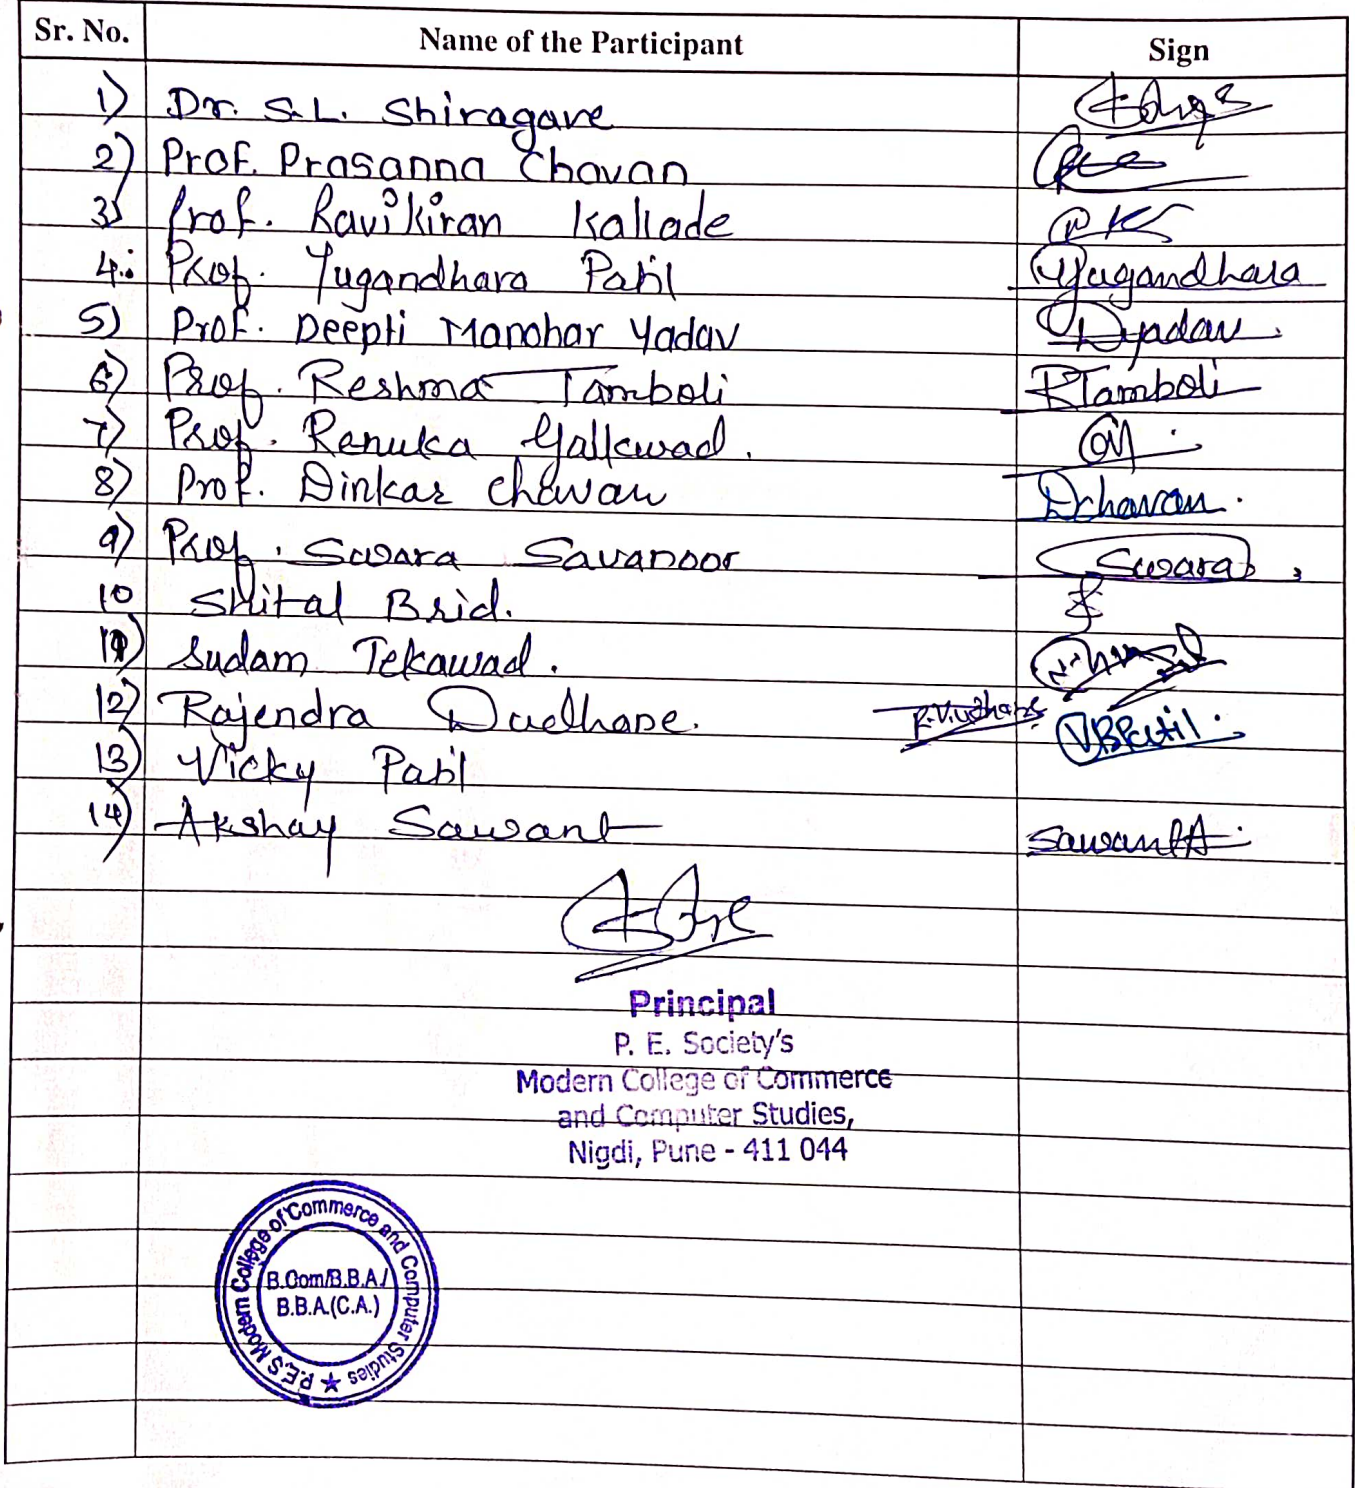 Sr. No. Name of the Participant Sign
1) Dr. S.L. Shiragave
2) Prof. Prasanna Chavan
3) Prof. Ravikiran Kallade
4. Prof. Yugandhara Patil Yugandhara
5) Prof. Deepti Manohar Yadav Dyadav.
6) Prof. Reshma Tamboli RTamboli
7) Prof. Renuka Gaikwad.
8) Prof. Dinkar Chavan Dchavan.
9) Prof. Swara Savanoor Swara
10 Shital Brid.
11) Sudam Tekawad.
12) Rajendra VBPatil.
13) Vicky Patil
14) Akshay Sawant SawantA
Principal
P. E. Society's
Modern College of Commerce
and Computer Studies,
Nigdi, Pune - 411 044
P.E.S Modern College of Commerce and Computer Studies ★
B.Com/B.B.A/
B.B.A.(C.A.)